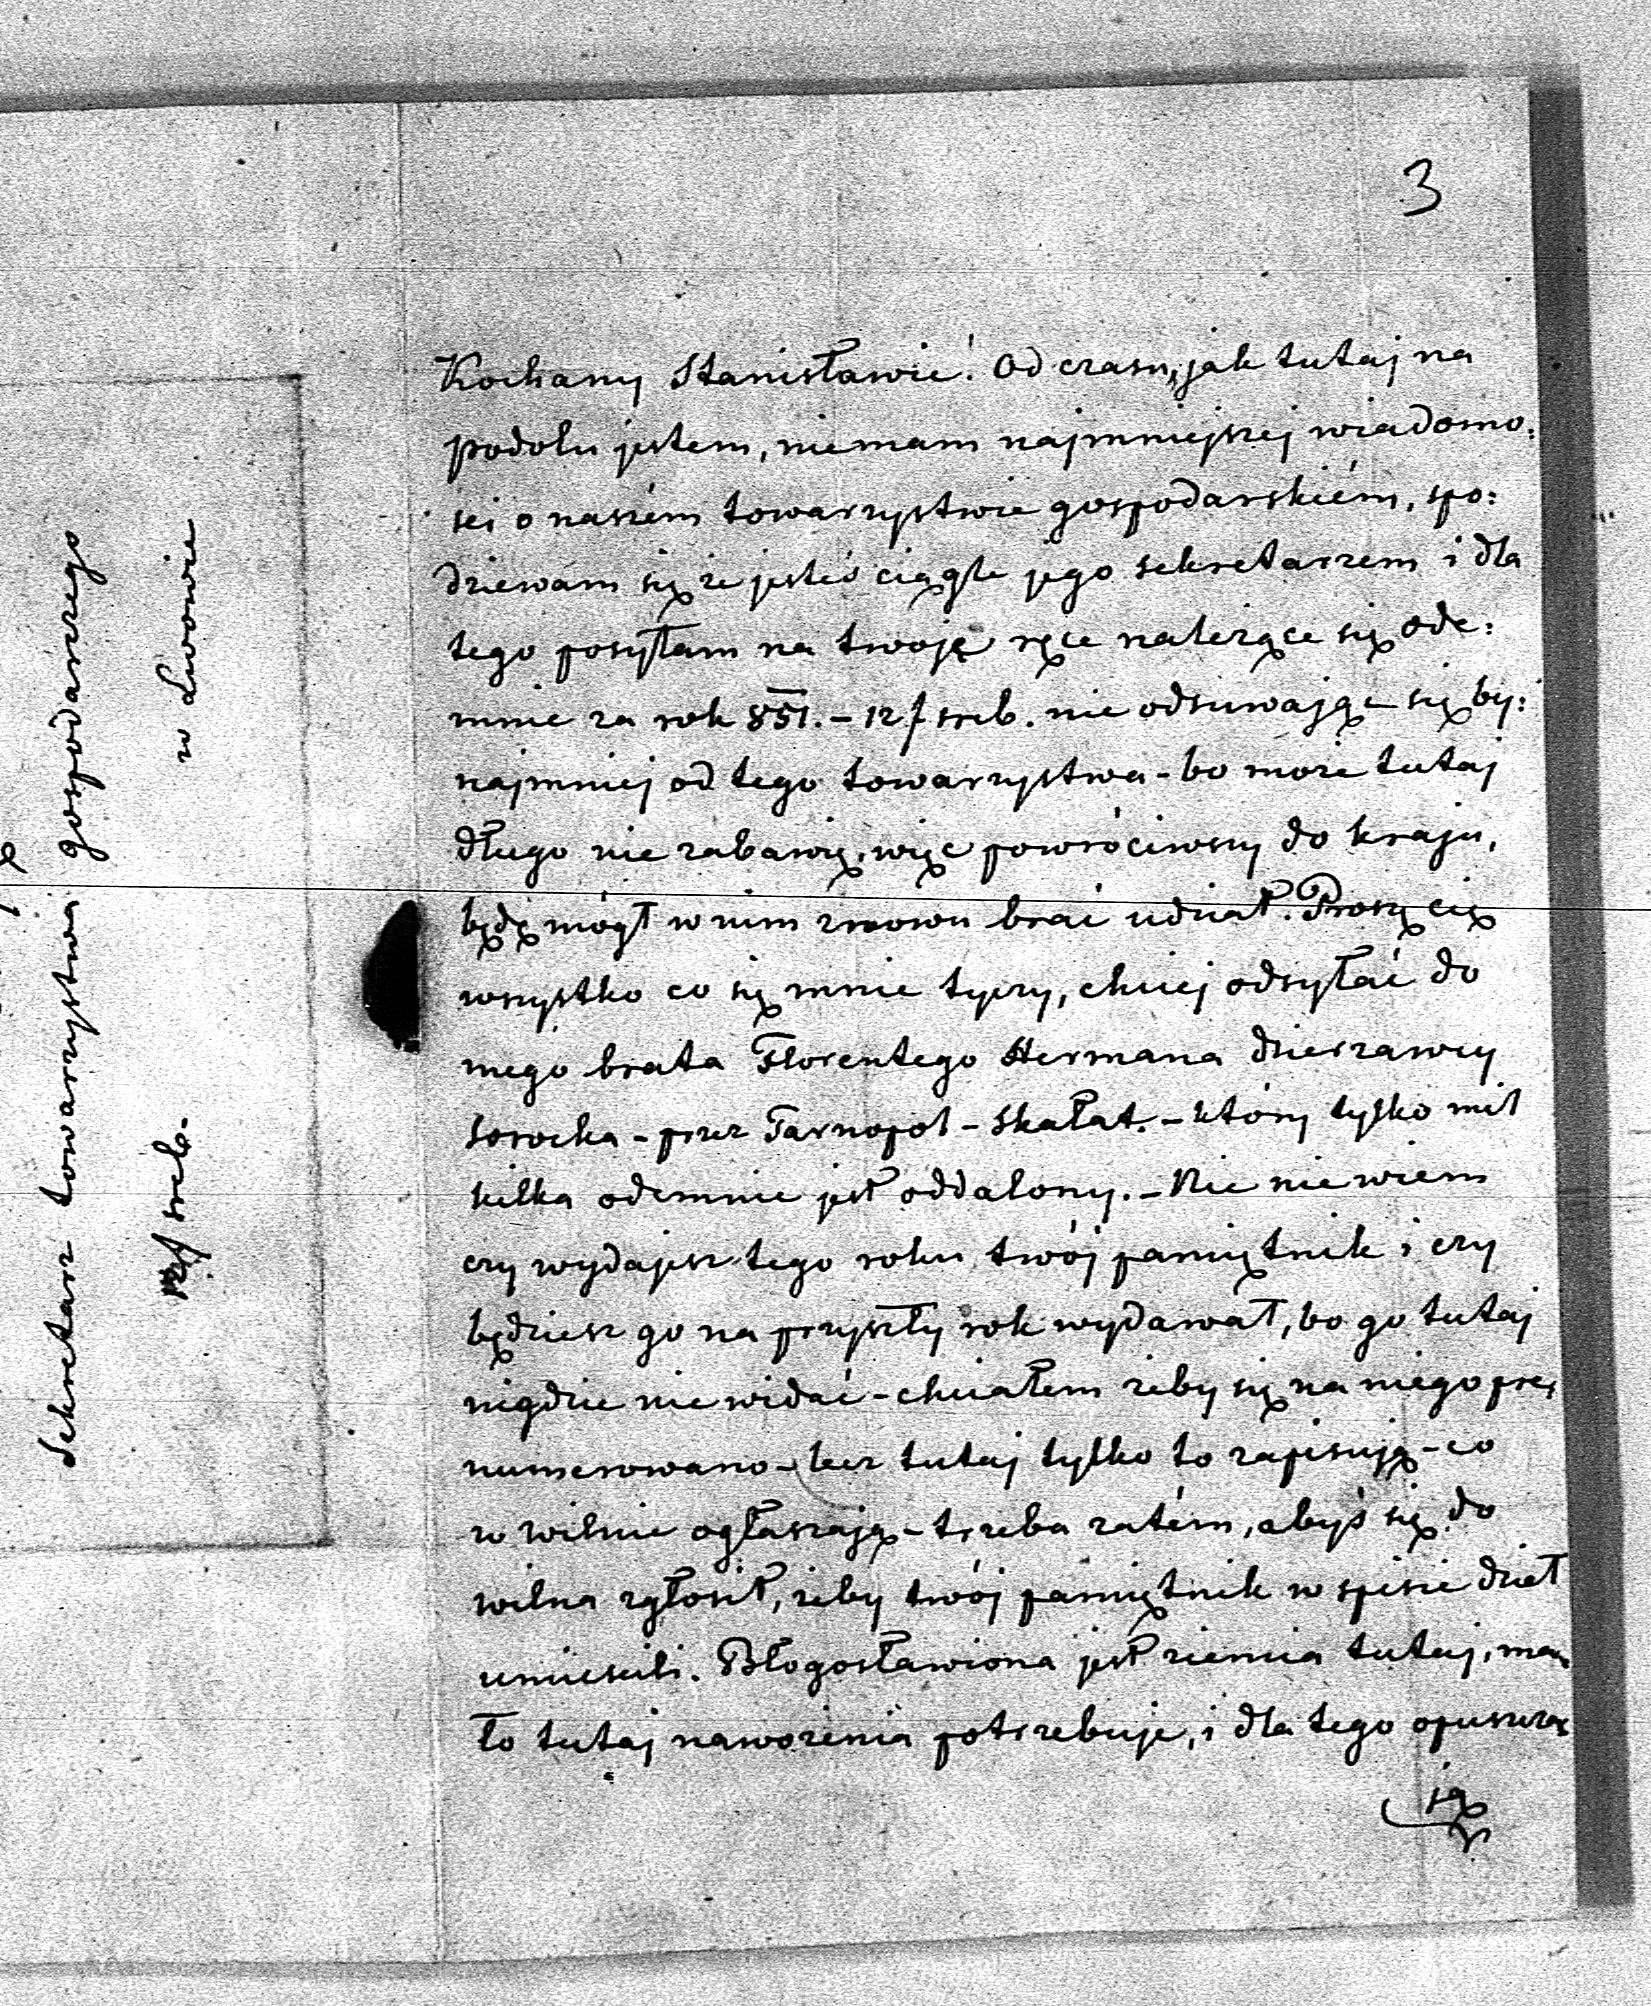 3
Kochany Stanisławie! Od czasu, jak tutaj na
podolu jestem, niemam najmniejszej wiadomo:
sci o naszém towarzystwie gospodarskiém, spo:
dziewam się że jesteś ciągle jego sekretarzem i dla
tego posyłam na twoję ręce należące się ode:
mnie za rok 851. – 12 f sreb. nie odsuwając się by:
najmniej od tego towarzystwa – bo może tutaj
długo nie zabawię, więc powróciwszy do kraju,
będę mógł w nim znowu brać udział. Proszę cię
wszystko co się mnie tyczy, chciej odsyłać do
mego brata Florentego Hermana dzierzawcy
Sorocka – przez Tarnopol – Skałat. – który tylko mil
kilka odemnie jest oddalony. – Nic nie wiem
czy wydajesz tego roku twój pamiętnik i czy
będziesz go na przyszły rok wydawał, bo go tutaj
nigdzie nie widać – chciałem żeby się na niego pre:
numerowano – lecz tutaj tylko to zapisują – co
w wilnie ogłaszają – trzeba zatém, abyś się do
wilna zgłosił, żeby twój pamiętnik w spisie dzieł
umieścili. Błogosławiona jest ziemia tutaj, ma:
ło tutaj nawożenia potrzebuje, i dla tego opuszcza:
ją
Sekretarz towarzystwa gospodarzego
w Lwowie
12 f sreb.